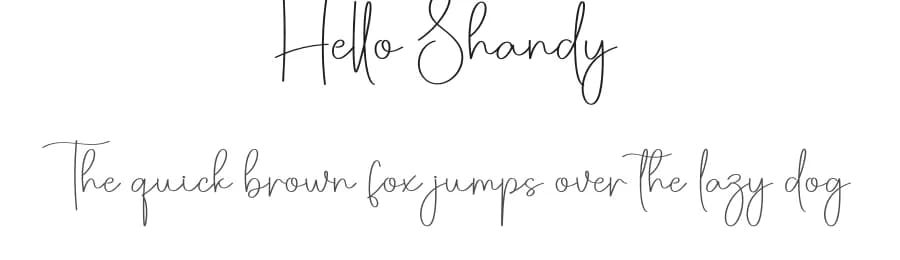 Hello Shandy
The quick brown fox jumps over the lazy dog